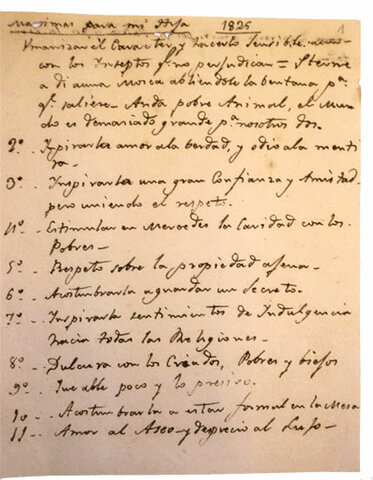 Maximas para mi Hija 1825
1
Umanizar el Caracter y hacerlo sensible aun
con los Insectos qe. no perjudican = Sterne
a dicho a una Mosca abriendole la bentana pa.
qe. saliese - Anda pobre Animal, el Mun
do es demaciado grande pa. nosotros dos.
2o. - Inspirarla amor ala berdad, y odio ala menti
ra -
3o. - Inspirarla una gran Confianza y Amistad
pero uniendo el respeto.
4o. - Estimular en Mercedes la Caridad con los
Pobres -
5o. - Respeto sobre la propiedad agena -
6o. - Acostumbrarla a guardar un Secreto.
7o. - Inspirarla sentimientos de Indulgencia
hacia todas las Religiones -
8o. - Dulzura con los Criados, Pobres y biejos
9o. - Que able poco y lo preciso.
10 - Acostumbrarla a estar formal en la Mesa
11 - Amor al Aseo y desprecio al Lujo -